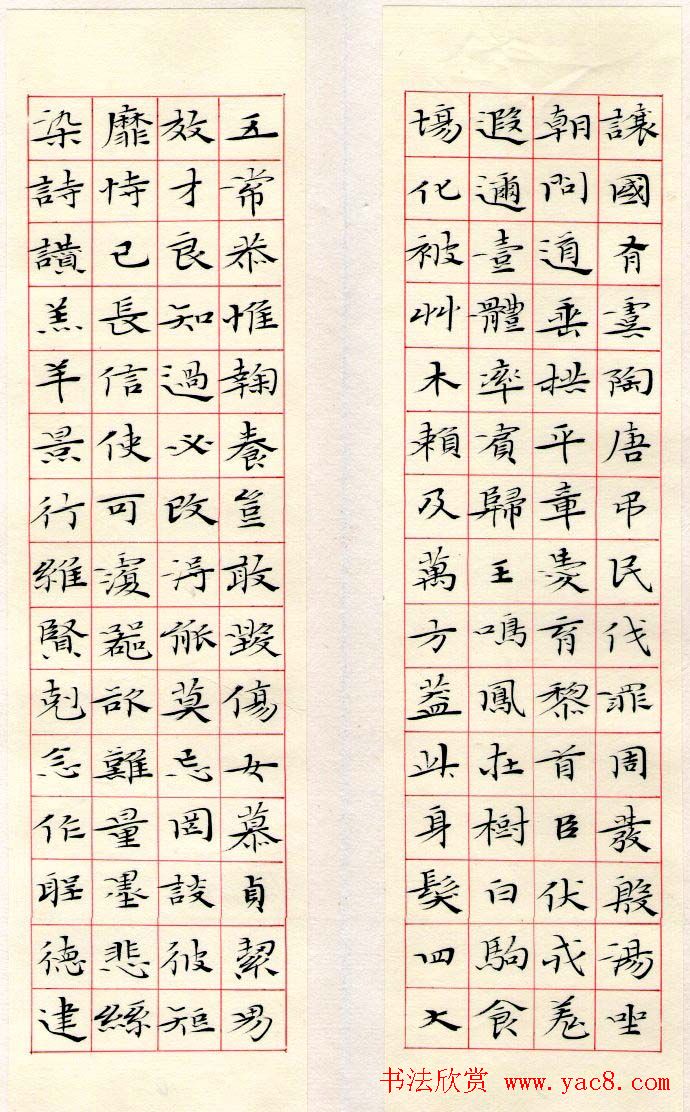 讓國有虞陶唐吊民伐罪周發殷湯坐
朝問道垂拱平章愛育黎首臣伏戎羌
遐邇壹體率賓歸王鳴鳳在樹白駒食
場化被艸木賴及萬方蓋此身髮四大
五常恭惟鞠養豈敢毀傷女慕貞絜男
效才良知過必改得能莫忘罔談彼短
靡恃己長信使可覆器欲難量墨悲絲
染詩讚羔羊景行維賢剋念作聖德建
书法欣赏 www.yac8.com